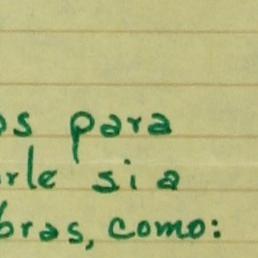 os para
rle si a
bras, como: